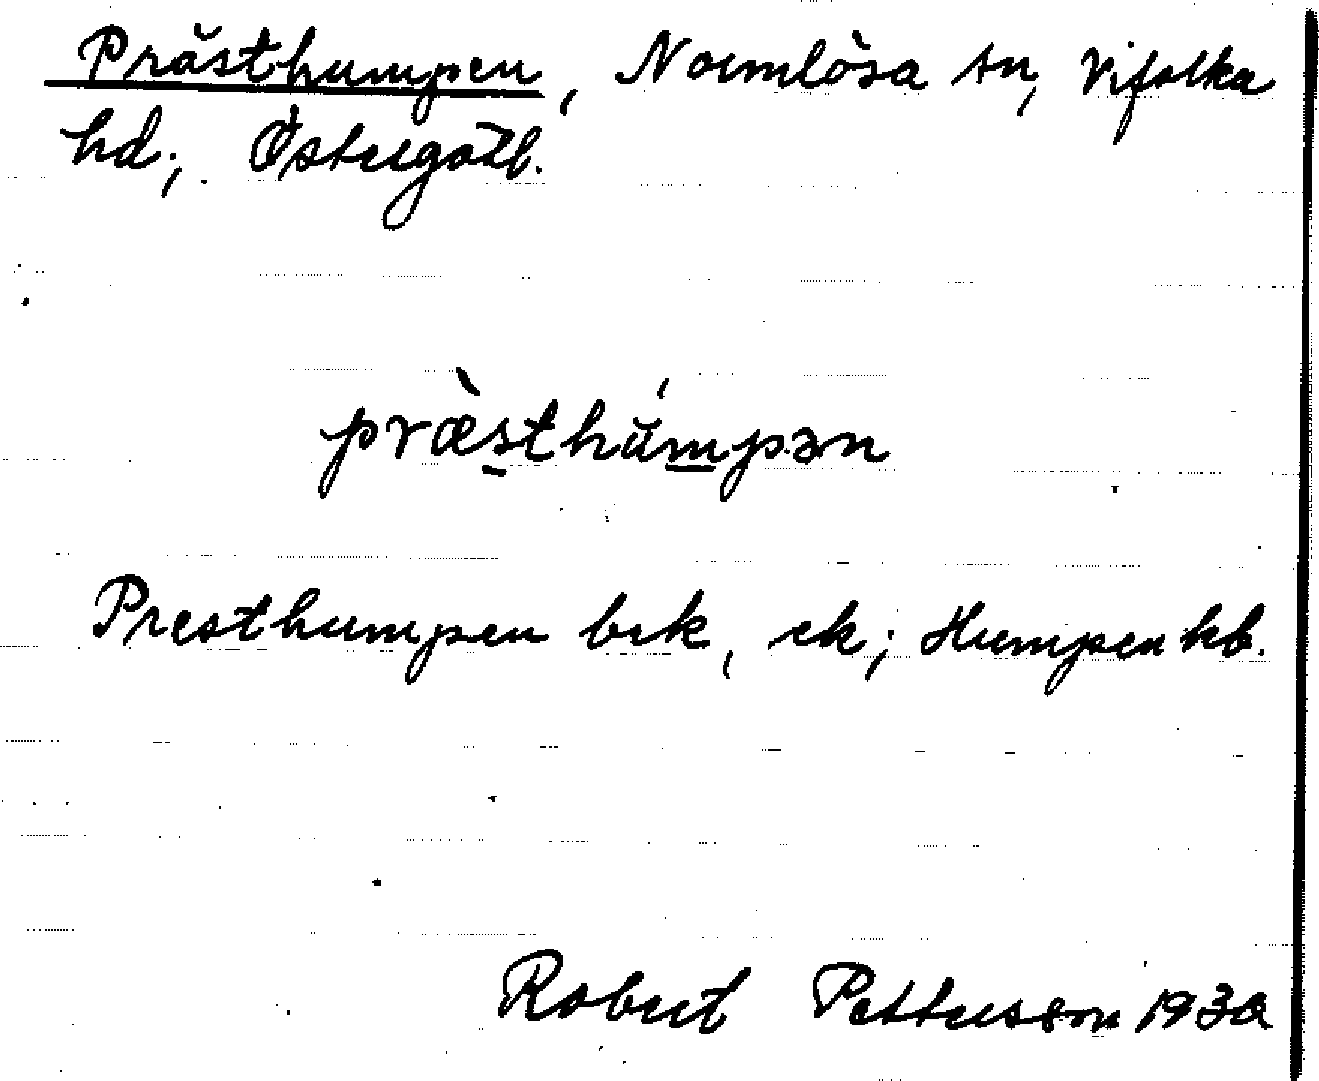 Prästhumpen, Normlösa sn, Vifolka
hd; Östergötl.
præ̀sthúmpən
Presthumpen bek, ek; Humpen kb.
Robert Pettersson 1930